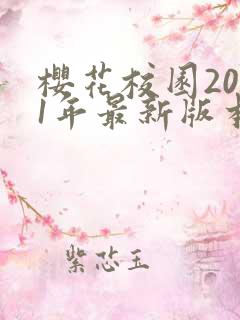 櫻花校园20
1年最新版本
紫芯玉